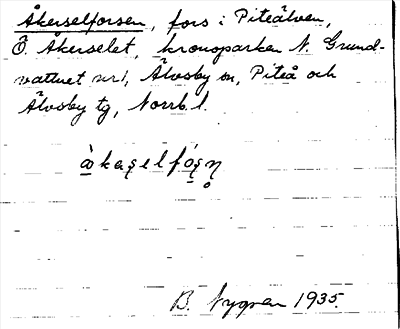 Åkerselforsen, fors i Piteälven,
Ö. Åkerselet, kronoparken N. Grund-
vattnet nr 1, Älvsby sn, Piteå och
Älvsby tg, Norrb. l.
B. Nygren 1935.